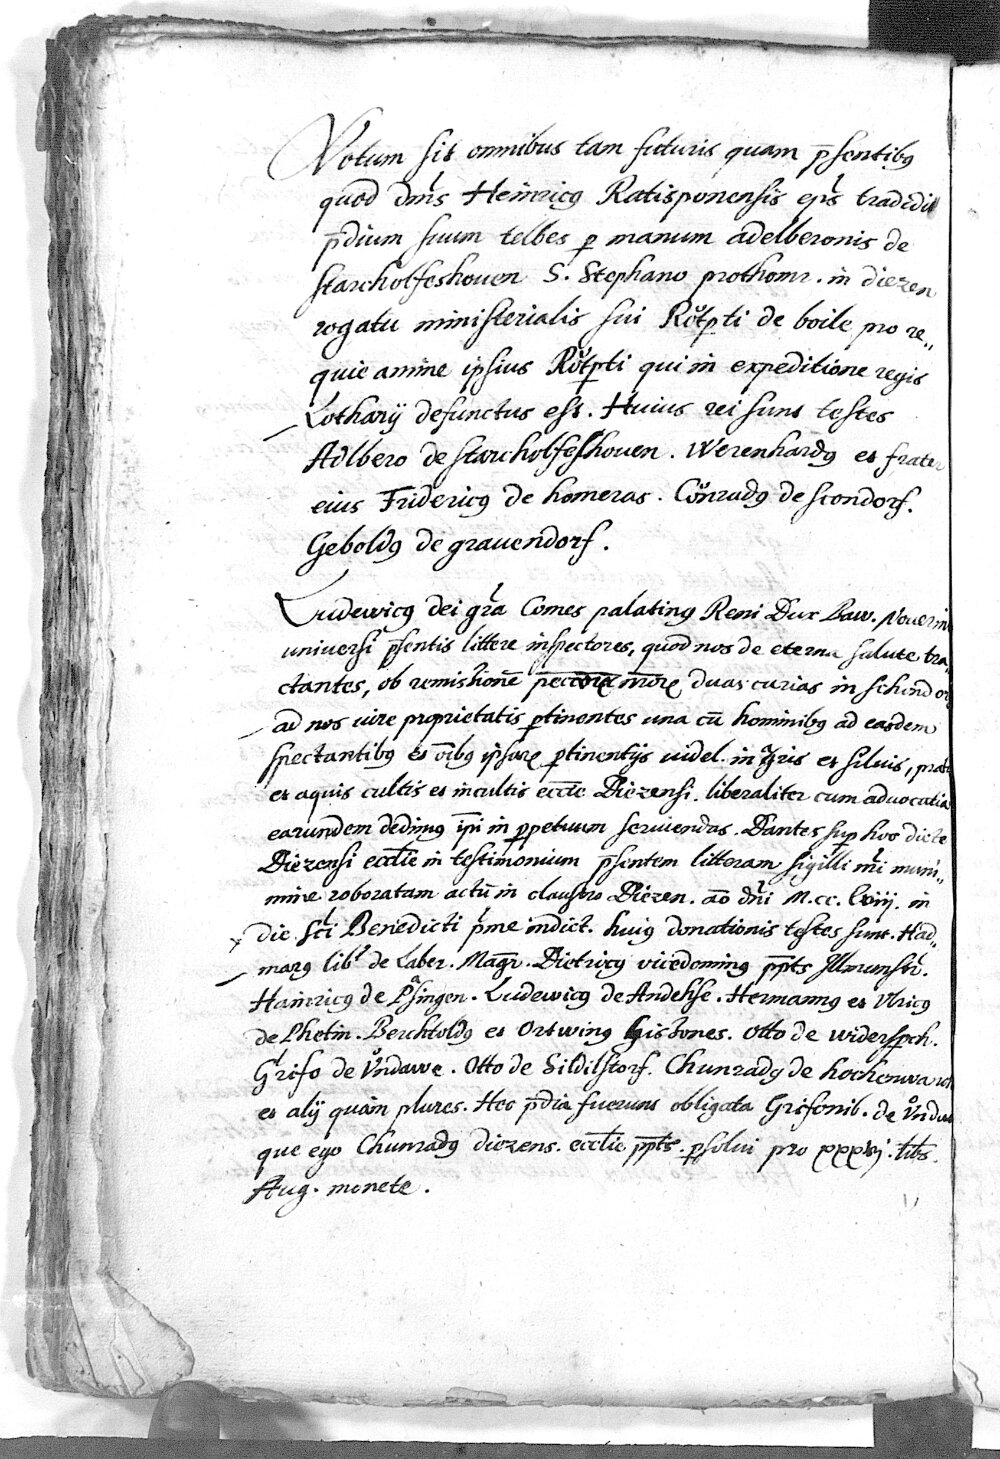 Notum sit omnibus tam futuris quam p̄sentibꝯ
quod dn̄s Heinricꝯ Ratisponensis ep̄s tradidit
p̄dium suum telbes p manum adelberonis de
starcholfeshouen S. Stephano prothomr. in diezen
rogatu ministerialis sui Rͦutpti de boile pro re„
quie amine ipsius Rͦutpti qui in expeditione regis
Lotharÿ defunctus est. Huius rei sunt testes
Adlbero de starcholfeshouen. Werenhardꝯ et frater
eius Fridericꝯ de homeras. Cͦunradꝯ de scondorf.
Geboldꝯ de grauendorf.
Ludewicꝯ dei gr̄a Comes palatinꝯ Reni Dux Baw. Nouerint
universi p̄sentis littere inspectores, quod nos de eterna salute tra„
ctantes, ob remissionē duas curias in schondorf
ad nos iure proprietatis ptinentes una cū hominibꝯ ad easdem
spectantibꝯ et ōibꝯ ipsarꝝ ptinentijs uidel. in agris et siluis,
et aquis cultis et incultis eccĺe Diezensi. liberaliter cum aduocatia
earundem dedimꝯ ip̄i in ppetuum seruiendas. Dantes sup hos dicte
Diezensi eccĺie in testimonium p̄sentem litteram sigilli nr̄i muni„
mine roboratam actū in claustro Diezen. aō dn̄i M.cc. lxiij. in
die sc̄i Benedicti p̄me indict. huiꝯ donationis testes sunt. Had„
marꝯ lib' de Laber. Magr. Dietricꝯ vicedominꝯ pp̄ts Jllmunstr̄.
Hainricꝯ de Pasingen. Ludewicꝯ de Andehse. Hermannꝯ et Vlricꝯ
de Phetin. Berchtoldꝯ et Ortwinꝯ Otto de widerspch.
Grifo de vͦndawe. Otto de Sidilstorf. Chunradꝯ de hochenwart
et alÿ quam plures. Hec p̄dia fuerunt obligata Grifonib. de vͦndaw
que ego Chunradꝯ diezens. eccĺie pp̄ts. psolui pro xxxvj. libs.
Aug. monete.